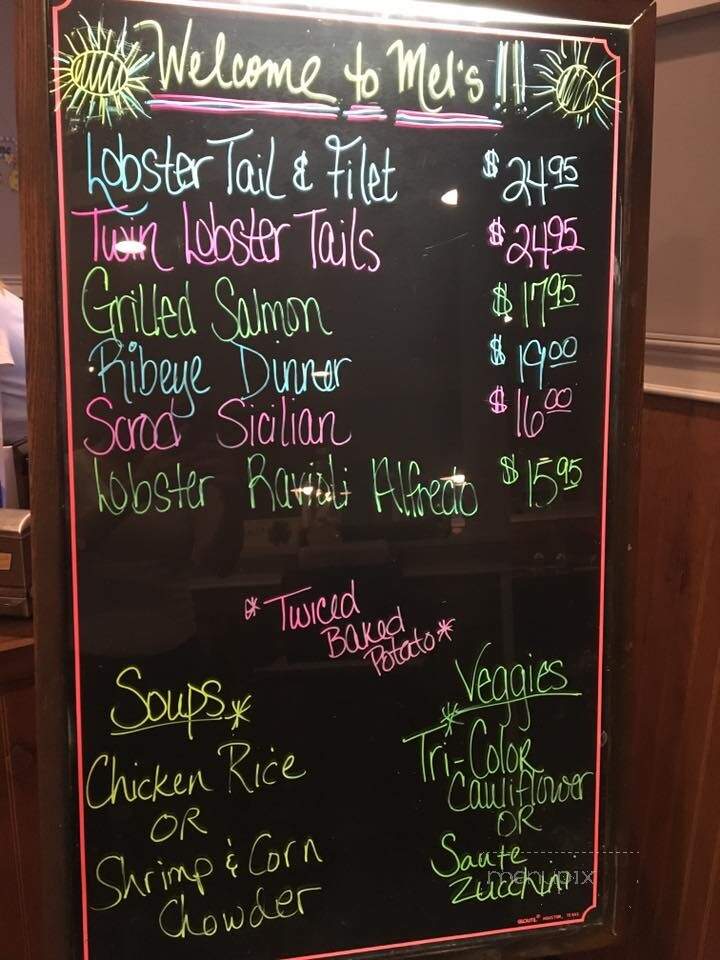 Welcome to Mel's !!!
Lobster Tail & Filet $ 24.95
Twin Lobster Tails $ 24.95
Grilled Salmon $ 17.95
Ribeye Dinner $ 19.00
Scrod Sicilian $ 16.00
Lobster Ravioli Alfredo $ 15.95
* Twiced
Baked
Potato *
Soups *
Chicken Rice
OR
Shrimp & Corn
Chowder
Veggies
* Tri-Color
Cauliflower
OR
Saute
Zucchini
menupix
HOUSTON, TEXAS